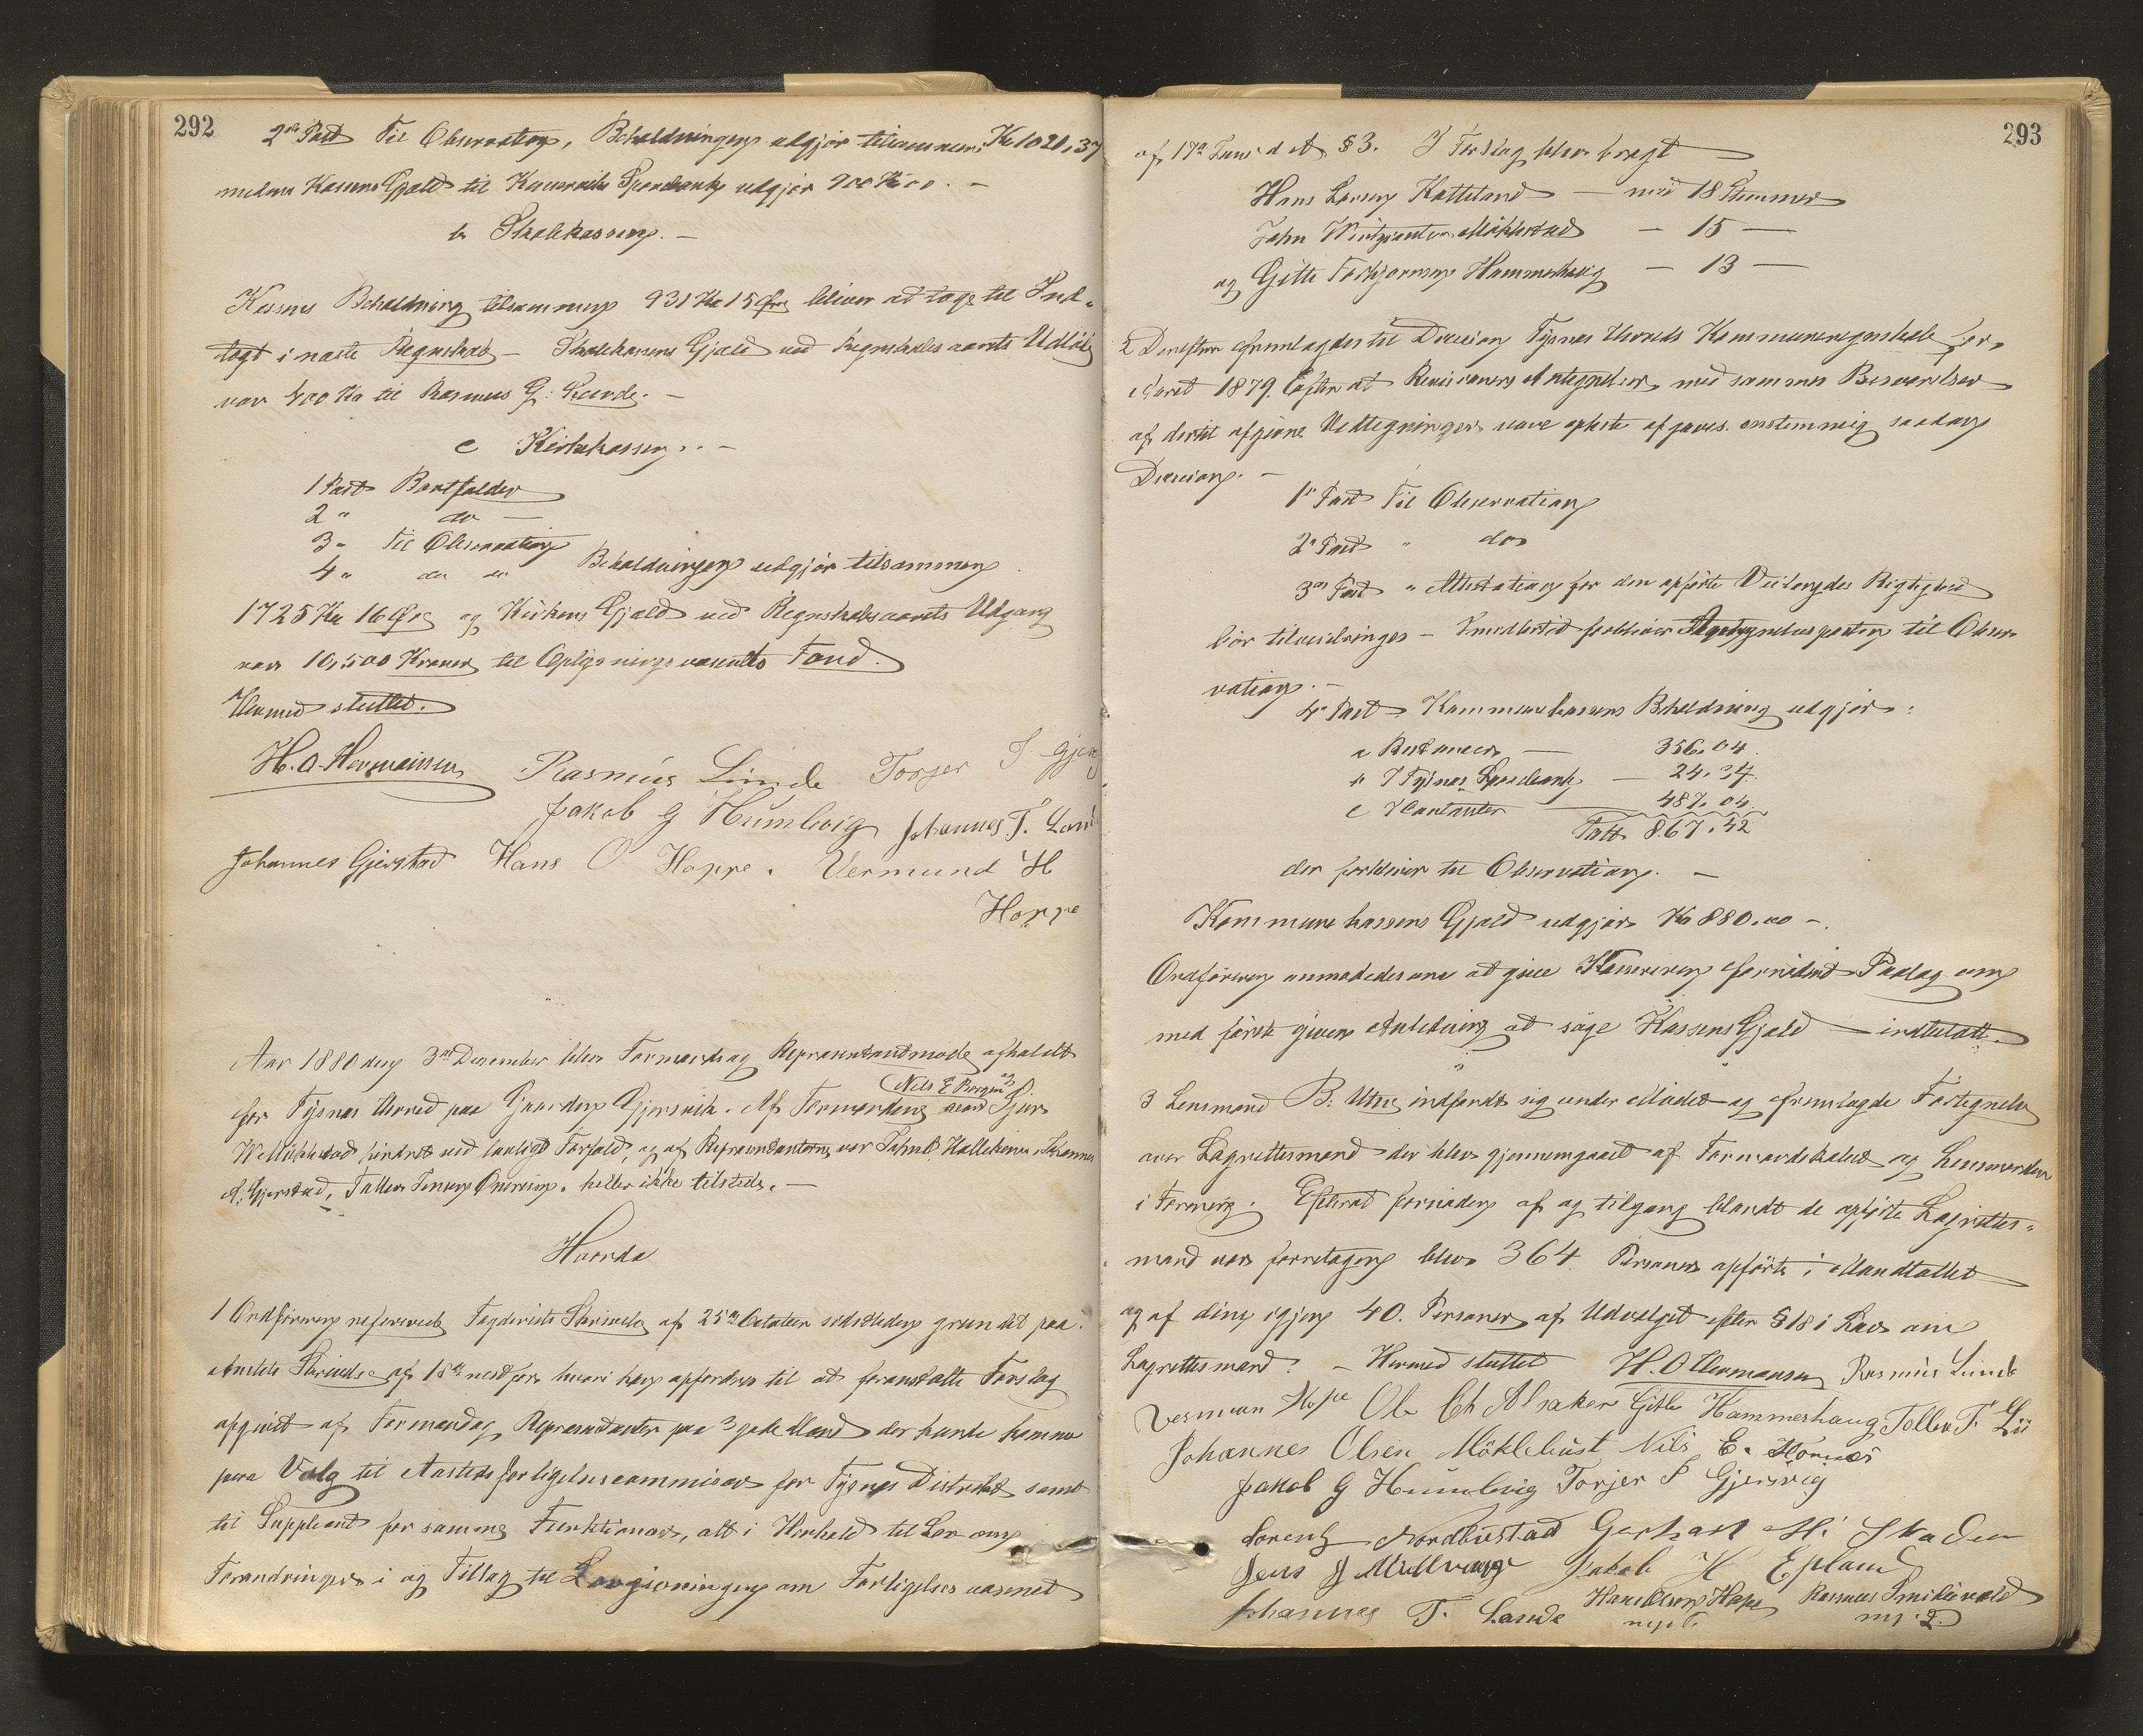 292
2den Post Til Observation, Beholdningen udgjör tilsammen Kr 1021,37
medens Kassens Gjæld til Sparebank udgjör 900 Kr 00. -
b Skolekassen. -
Kassens Beholdning tilsammen 931 Kr 15 Øre bliver at tage til Ind-
tægt i næste Regnskab - Skolekassens Gjæld ved Regnskabsaarets Udløb
var 400 Kr til Rasmus G: Lunde. -
c Kirkekassen. -
1 Post Bortfalder
2 " do -
3 " Til Observation
4 " do do Beholdningen udgjör tilsammen
1725 Kr 16 Øre og Kirkens Gjæld ved Regnskabsaarets Udgang
var 10,500 Kroner til Oplysningsvæsenets Fond.
Hermed sluttet.
H. O. Hermansen Rasmus Lunde Torger J Gjer
Jakob G Humlevig Johannes T. Land
Johannes Gjerstad Hans O Hoppe. Vermund H
Hoppe
Aar 1880 den 3die December blev Formænd og Repræsentantmöde afholdt
for Tysnes Herred paa Gaarden Gjersvik. Af Formænden var Sjur
Nils E Bergen og
W Möklestad hindret ved lovligt Forfald, og af Repræsentanterne var John O. Hallekiven Johannes
A. Gjerstad, Tollev Jensen Onereim. heller ikke tilstede. -
Hvorda
1 Ordföreren refererede Fogderiets Skrivelse af 25de October sidstleden grundet paa
Amtets Skrivelse af 18de næstfor hvori han opfordres til at foranstalte Forslag
opgivet af Formænd og Repræsentanter paa 3 gode Mænd der kunde komme
paa Valg til Aasteds forligelsescommissær for Tysnes Distrikt samt
til Suppleant for samme Funktionær, alt i Henhold til Lov om
Forandringer i og Tillæg til Lovgivningen om Forligelsesvæsenet
293
af 17de Juni d A § 3. I Forslag blev bragt
Hans Larsen Katteland - med 18 Stemmer
John Möklestad - 15 -
og Gitle Torbjornsen Hammerhaug - 13 -
2 Derefter fremlagdes til Decision Tysnes Herreds Kommuneregnskab for
Aaret 1879. Efter at Revisionens Antegnelser med sammes Besvarelser
af dertil afgivne Vedtegninger vare oplæste afgaves enstemmig saadan
Decision. -
1ste Post Til Observation
2den Post " do
3die Post " Attestation for den opförte Veilængdes Rigtighed
bör tilveiebringes - Imidlertid forbliver Antegnelsesposten til Obser-
vation. -
4de Post Kommunekassens Beholdning udgjör:
a Restancer - 356.04
b I Tysnes Sparebank - 24.34
c I Contanter 487.04
Tatt 867.42
der forbliver til Observation. -
Kommunekassens Gjæld udgjör Kr 880.00 -.
Ordföreren anmodedes om at give Kassereren fornödent Paalæg om
med förste given Anledning at söge Kassens Gjæld - indbetalt.
3 Lensmand B: Utne indfandt sig under Mödet og fremlagde Fortegnelse
over Lagrettesmænd der blev gjennemgaaet af Formandskabet og Lensmanden
i Forening. Efterat fornöden af og tilgang blandt de opförte Lagrettes-
mænd var foretagen blev 364. Personer opförte i Mandtallet
og af dem igjen 40. Personer af Udvalget efter § 18 i Lov om
Lagrettesmænd. - Hermed sluttet H. O Hermansen Rasmus Lunde
Vermun Hope Ole Ch Alsaker Gitle Hammerhaug Tollev T. Lii
Johannes Olsen Möklebust Nils E. Hornes
Jakob G Humlevig Torjer J Gjersvig
Lorentz Nordbustad Gerhart M: Skaden
Jens J Jakob H Epland
Johannes T. Lande Hans Olsen Hope Rasmus Smiksvold
mp: P. mp: P.